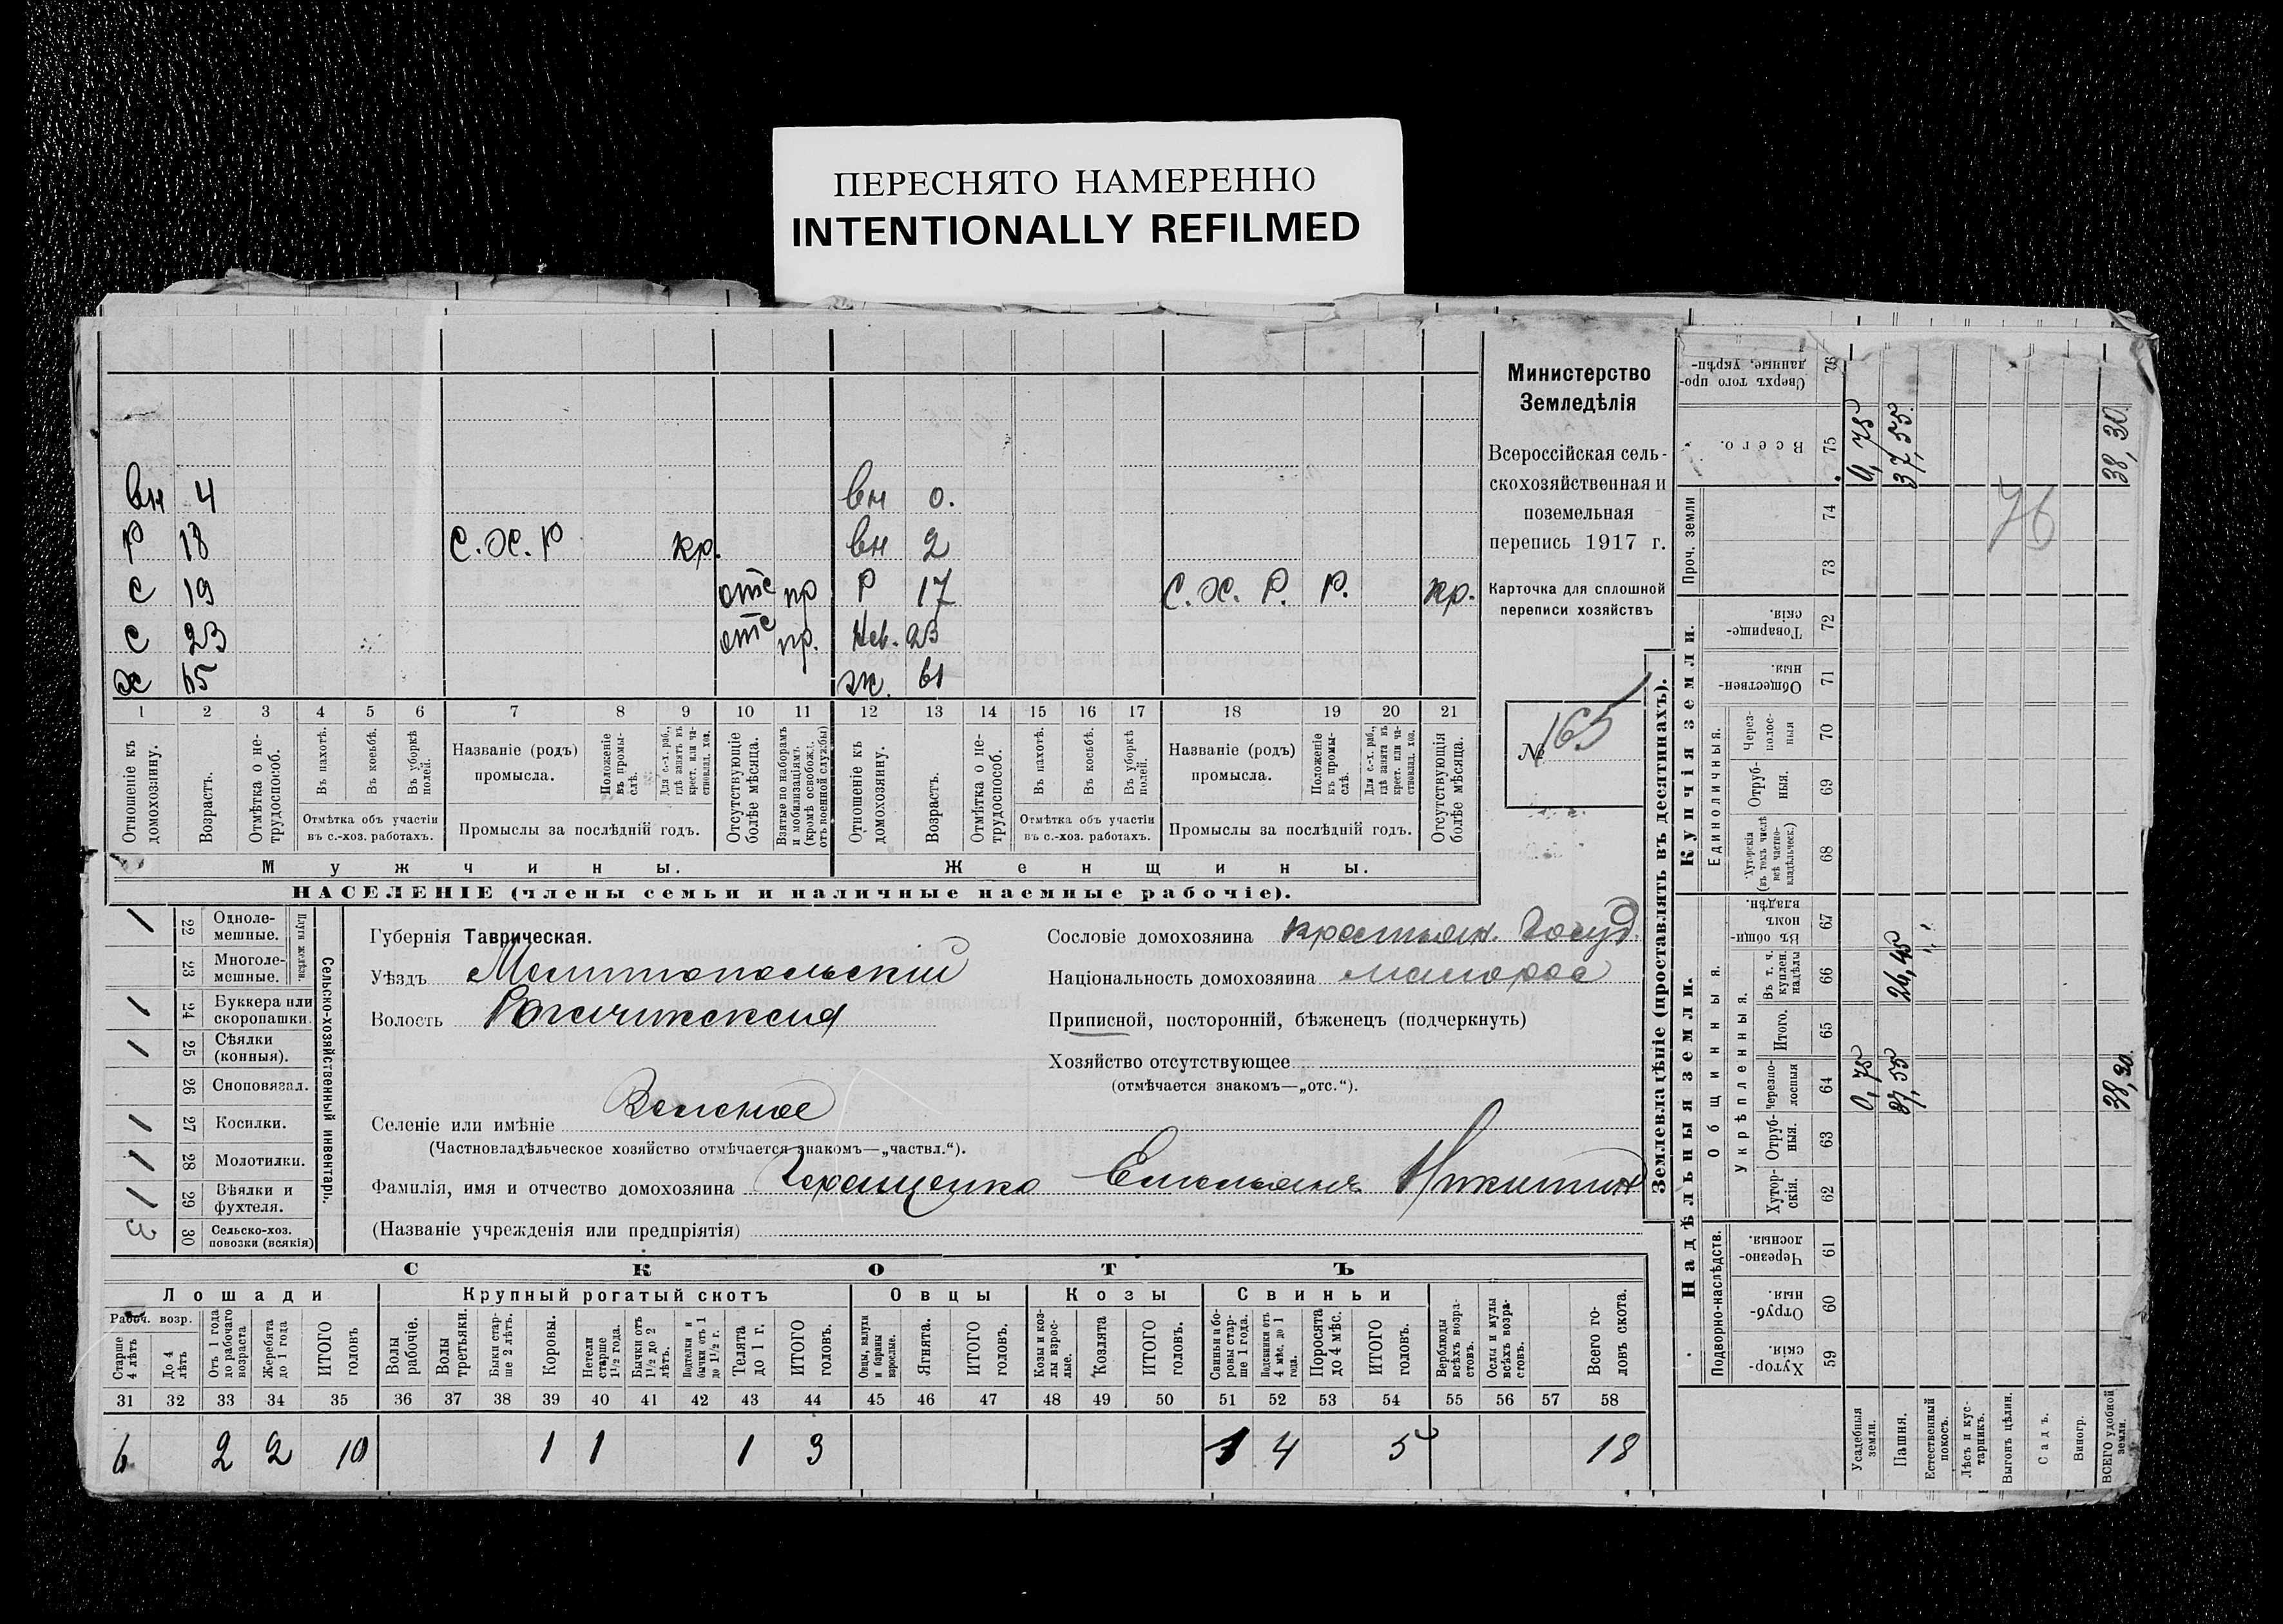 ПЕРЕСНЯТО НАМЕРЕННО
INTENTIONALLY REFILMED
Министерство
Земледѣлія
Всероссійская сель-
скохозяйственная и
поземельная
перепись 1917 г.
Карточка для сплошной
переписи хозяйствъ
№ 165
вн 4 вн 0.
Р 18 С.Х.Р кр. вн 2
С 19 отс пр Р 17 С.Х.Р. Р. кр.
С 23 отс пр. Нев. 23
Х 65 ж. 61
1 2 3 4 5 6 7 8 9 10 11 12 13 14 15 16 17 18 19 20 21
Отношеніе къ домохозяину.
Возрастъ.
Отмѣтка о не-трудоспособ.
Въ пахотѣ.
Въ косьбѣ.
Въ уборкѣ полей.
Отмѣтка объ участіи
въ с.-хоз. работахъ.
Названіе (родъ)
промысла.
Положеніе въ промы-слѣ.
Для с.-х. раб., гдѣ занятъ въ крест. или ча-стновлад. хоз.
Промыслы за послѣдній годъ.
Отсутствующіе болѣе мѣсяца.
Взятые по наборамъ и мобилизаціямъ (кромѣ освобожд. отъ военной службы)
Отношеніе къ домохозяину.
Возрастъ.
Отмѣтка о не-трудоспособ.
Въ пахотѣ.
Въ косьбѣ.
Въ уборкѣ полей.
Отмѣтка объ участіи
въ с.-хоз. работахъ.
Названіе (родъ)
промысла.
Положеніе въ промы-слѣ.
Для с.-х. раб., гдѣ занята въ крест. или ча-стновлад. хоз.
Промыслы за послѣдній годъ.
Отсутствующія болѣе мѣсяца.
Мужчины. Женщины.
НАСЕЛЕНІЕ (члены семьи и наличные наемные рабочіе).
Сельско-хозяйственный инвентарь.
Плуги желѣзн.
1 22 Одноле-мешные.
23 Многоле-мешные.
1 24 Буккера или скоропашки.
1 25 Сѣялки (конныя).
26 Сноповязал.
1 27 Косилки.
1 28 Молотилки.
1 29 Вѣялки и фухтеля.
3 30 Сельско-хоз. повозки (всякія)
Губернія Таврическая.
Уѣздъ Мелитопольскій
Волость Рогачикская
Селеніе или имѣніе
(Частновладѣльческое хозяйство отмѣчается знакомъ—„частвл.“).
Фамилія, имя и отчество домохозяина Геращенко Емельянъ Никитин
(Названіе учрежденія или предпріятія)
Сословіе домохозяина крестьян. Госуд.
Національность домохозяина малорос
Приписной, посторонній, бѣженецъ (подчеркнуть)
Хозяйство отсутствующее
(отмѣчается знакомъ—„отс.“).
СКОТЪ
Лошади Крупный рогатый скотъ Овцы Козы Свиньи
Рабоч. возр.
Старше 4 лѣтъ
До 4 лѣтъ
Отъ 1 года до рабочаго возраста
Жеребята до 1 года
ИТОГО головъ
Волы рабочіе.
Волы третьяки.
Быки стар-ше 2 лѣтъ.
Коровы.
Нетели старше 1½ года.
Бычки отъ 1½ до 2 лѣтъ.
Подтелки и бычки отъ 1 до 1½ г.
Телята до 1 г.
ИТОГО головъ.
Овцы, валухи и бараны взрослые.
Ягнята.
ИТОГО головъ.
Козы и коз-лы взрос-лые.
Козлята
ИТОГО головъ.
Свиньи и бо-ровы стар-ше 1 года.
Подсвинки отъ 4 мѣс. до 1 года.
Поросята до 4 мѣс.
ИТОГО головъ.
Верблюды всѣхъ возра-стовъ.
Ослы и мулы всѣхъ возра-стовъ.
Всего го-ловъ скота.
31 32 33 34 35 36 37 38 39 40 41 42 43 44 45 46 47 48 49 50 51 52 53 54 55 56 57 58
6 2 2 10 1 1 1 3 1 4 5 18
Землевладѣніе (проставлять въ десятинахъ).
Надѣльныя земли. Купчія земли. Проч. земли
Подворно-наслѣдств. Общинныя. Укрѣпленныя. Единоличныя.
Хутор-скія. 59
Отруб-ныя. 60
Черезпо-лосныя. 61
Хутор-скія. 62
Отруб-ныя. 63
Черезпо-лосныя 64
Итого. 65
Въ т. ч. куплен. надѣлы 66
Въ общин-номъ владѣн. 67
Хуторскія (въ томъ числѣ всѣ частно-владѣльческ.) 68
Отруб-ныя. 69
Через-полос-ныя 70
Обществен-ныя. 71
Товарище-скія. 72
73
74
Всего. 75
Сверхъ того про-данные, укрѣп- 76
Усадебныя земли. 0,75 0,75
Пашня. 37,55 24,45 37,55
Естественный покосъ.
Лѣсъ и кус-тарникъ.
Выгонъ цѣлин.
Садъ.
Виногр.
ВСЕГО удобной земли. 38,30 38,30
76